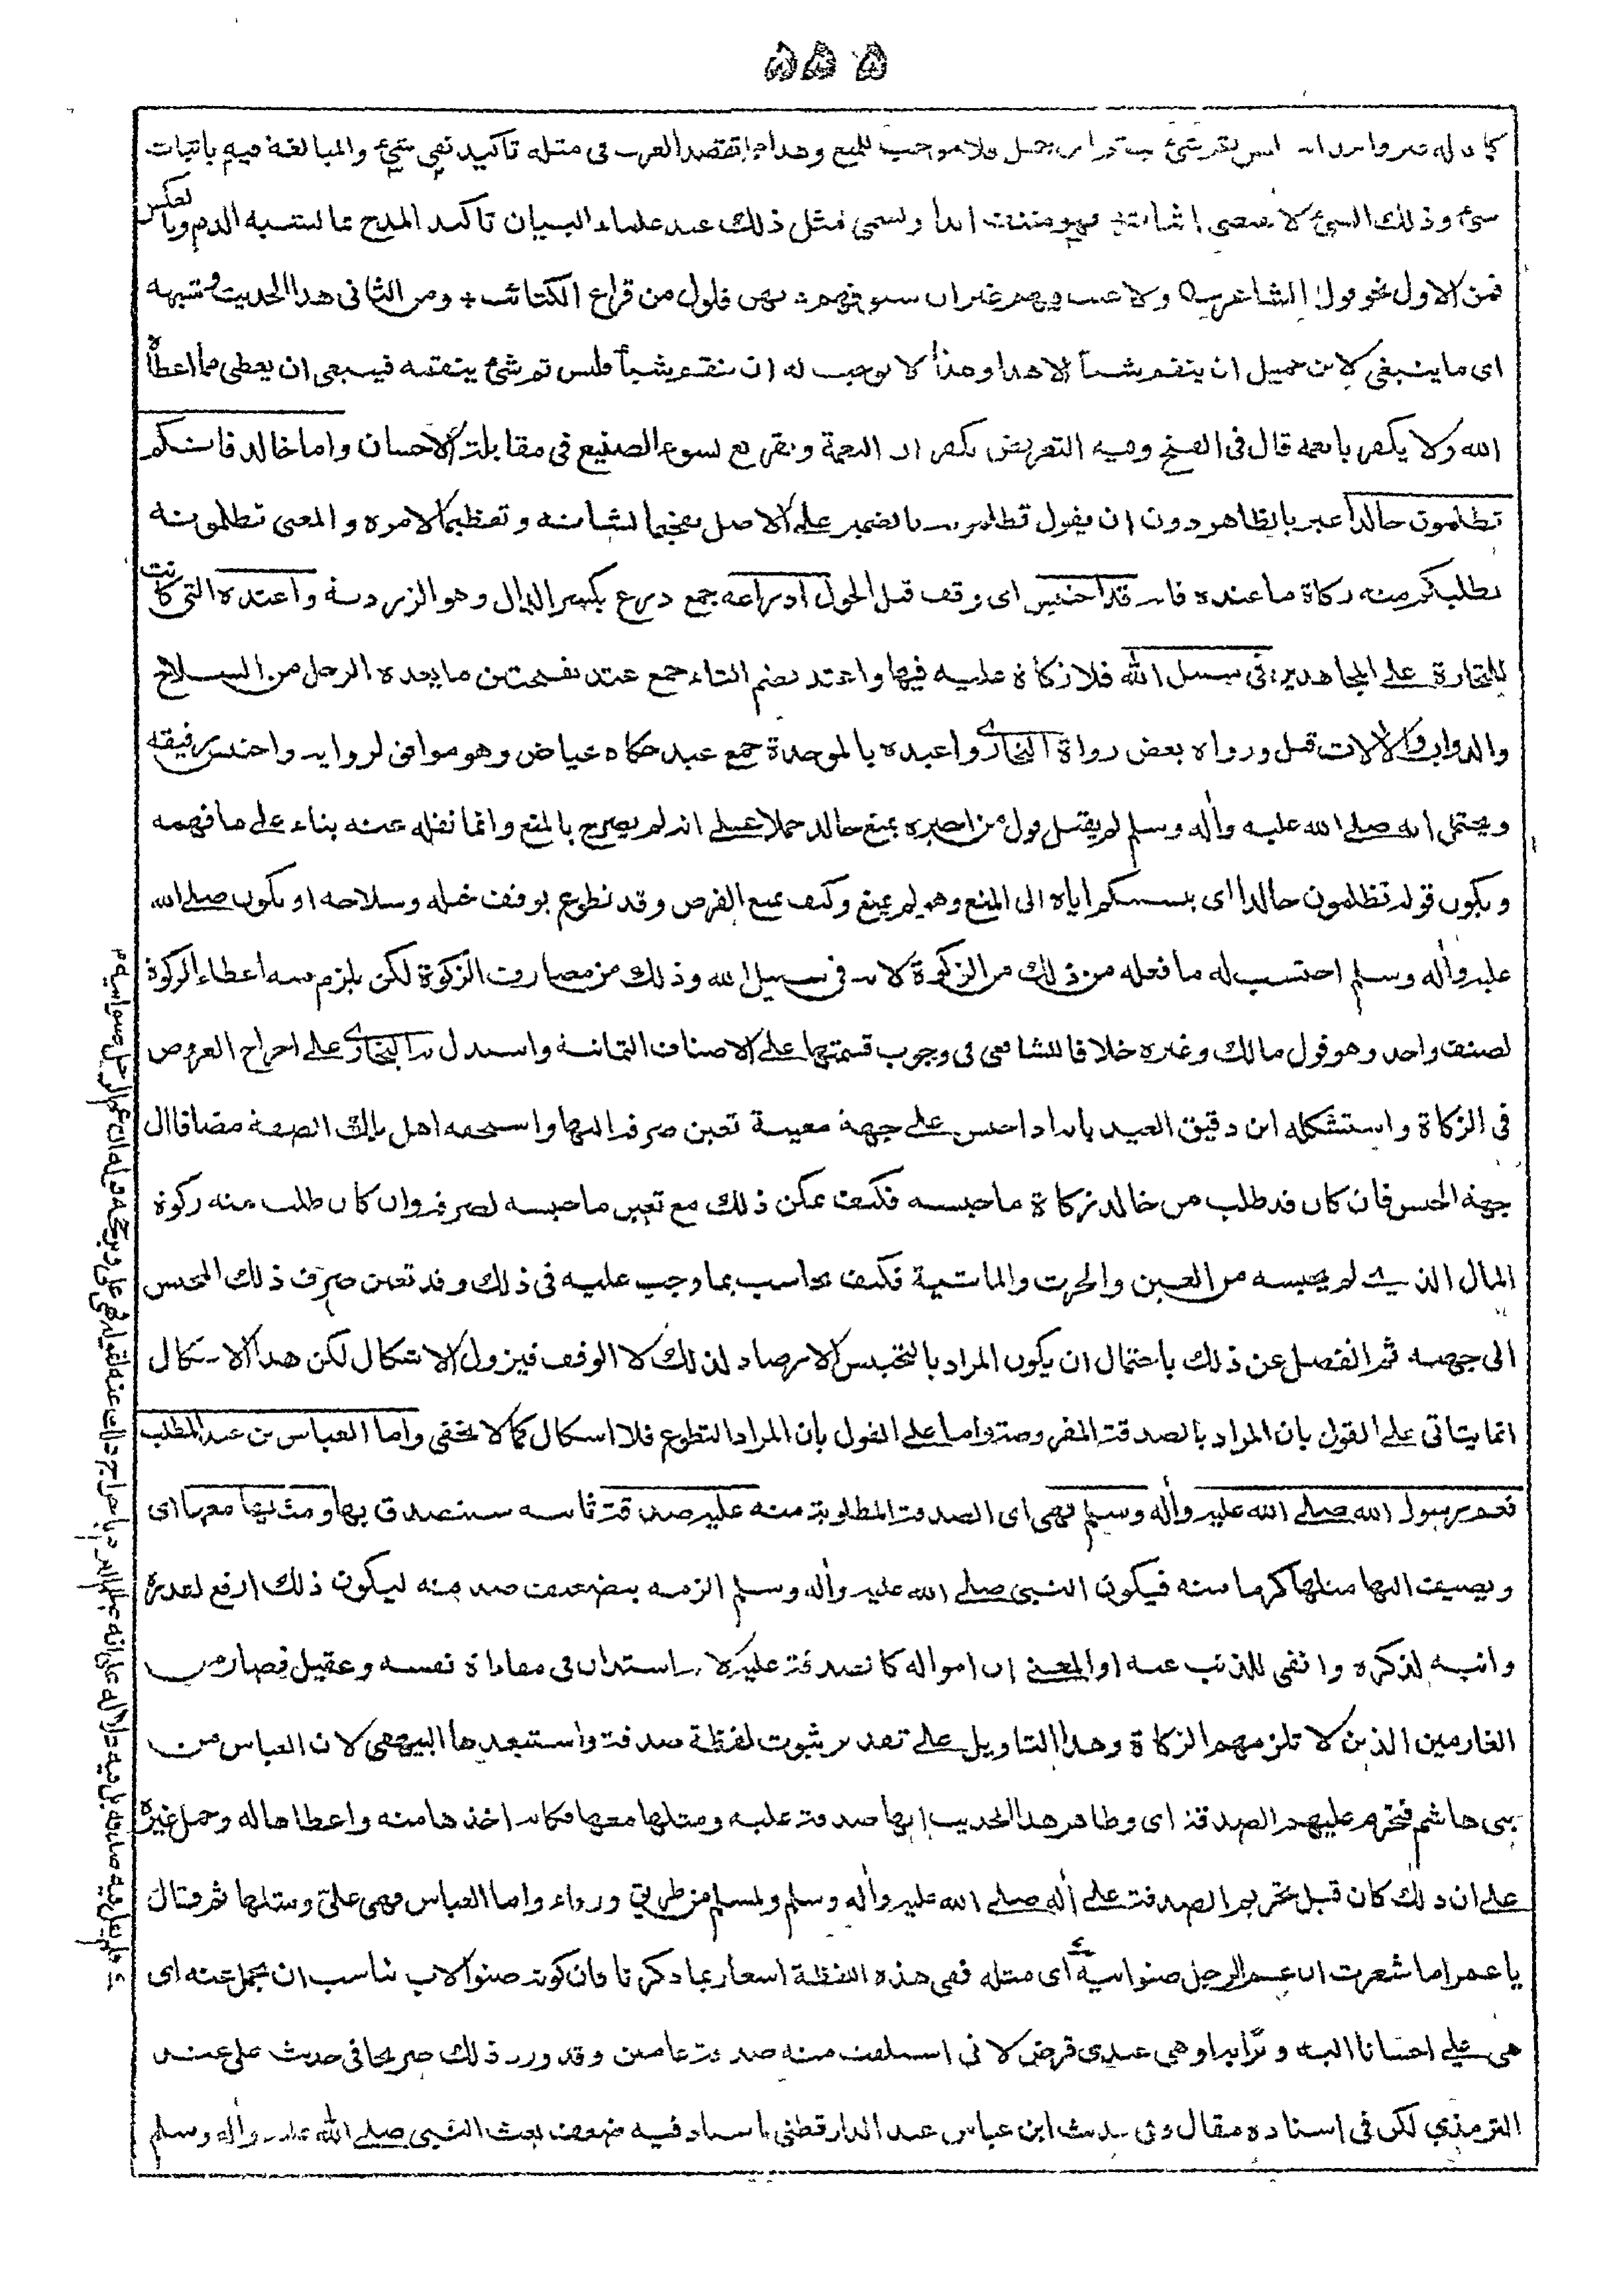 ٥٥٥
للمنع وهذا مما تقصد العرب فى مثله تاكيد نفى شئ والمبالغة فيه باثبات
شئ وذلك الشئ لا يقتضى اثباته فهو منتف ابدا ويسمى مثل ذلك عند علماء البيان تاكيد المدح بما يشبه الذم وبالعكس
فمن الاول نحو قول الشاعر ولا عيب فيهم غير ان سيوفهم * بهن فلول من قراع الكتائب * ومن الثانى هذا الحديث وشبهه
اى ما ينبغى لابن جميل ان ينقم شيأ الا هذا وهذا لا يوجب له ان ينقم شيأ فليس ثم شئ ينقمه فينبغى ان يعطى مما اعطاه
الله ولا يكفر بانعمه قال فى الفتح وفيه التعريض بكفران النعمة وتقريع بسوء الصنيع فى مقابلة الاحسان واما خالد فانكم
تظلمون خالدا عبر بالظاهر دون ان يقول تظلمونه بالضمير على الاصل تفخيما لشانه وتعظيما لامره والمعنى تظلمونه
بطلبكم منه زكاة ما عنده فانه قد احتبس اى وقف قبل الحول ادراعه جمع درع بكسر الدال وهو الزردية واعتده التى كانت
للتجارة على المجاهدين فى سبيل الله فلا زكاة عليه فيها واعتد بضم التاء جمع عتد بفتحتين ما يعده الرجل من السلاح
والدواب والالات قيل ورواه بعض رواة البخارى واعبده بالموحدة جمع عبد حكاه عياض وهو موافق لرواية واحتبس رقيقه
ويحتمل انه صلى الله عليه واله وسلم لم يقبل قول من اخبره بمنع خالد حملا على انه لم يصرح بالمنع وانما نقله عنه بناء على ما فهمه
ويكون قوله تظلمون خالدا اى بنسبتكم اياه الى المنع وهو لم يمنع وكيف يمنع الفرض وقد تطوع بوقف خيله وسلاحه او يكون صلى الله
عليه واله وسلم احتسب له ما فعله من ذلك من الزكوة لانه فى سبيل الله وذلك من مصارف الزكوة لكن يلزم منه اعطاء الزكوة
لصنف واحد وهو قول مالك وغيره خلافا للشافعى فى وجوب قسمتها على الاصناف الثمانية واستدل به البخارى على اخراج العروض
فى الزكاة واستشكله ابن دقيق العيد بانه اذا حبس على جهة معينة تعين صرفه اليها واستحقه اهل تلك الصفة مضافا الى
جهة الحبس فان كان قد طلب من خالد زكاة ما حبسه فكيف يمكن ذلك مع تعين ما حبسه لصرفه وان كان طلب منه زكوة
المال الذى لم يحبسه من العين والحرث والماشية فكيف يحاسب بما وجب عليه فى ذلك وقد تعين صرف ذلك المحبس
الى جهته ثم انفصل عن ذلك باحتمال ان يكون المراد بالتحبيس الارصاد لذلك لا الوقف فيزول الاشكال لكن هذا الاشكال
انما يتاتى على القول بان المراد بالصدقة المفروضة واما على القول بان المراد التطوع فلا اشكال كما لا يخفى واما العباس بن عبد المطلب
فعم رسول الله صلى الله عليه واله وسلم فهى اى الصدقة المطلوبة منه عليه صدقة ثابتة سيتصدق بها ومثلها معها اى
ويضيف اليها مثلها كرما منه فيكون النبى صلى الله عليه واله وسلم الزمه بتضعيف صدقته ليكون ذلك ارفع لقدره
وانبه لذكره وانفى للذنب عنه او المعنى ان امواله كالصدقة عليه لانه استدان فى مفاداة نفسه وعقيل فصار من
الغارمين الذين لا تلزمهم الزكاة وهذا التاويل على تقدير ثبوت لفظة صدقة واستبعدها البيهقى لان العباس من
بنى هاشم فتحرم عليهم الصدقة اى وظاهر هذا الحديث انها صدقة عليه ومثلها معها فكانه اخذها منه واعطاها له وحمل غيره
على ان ذلك كان قبل تحريم الصدقة على اله صلى الله عليه واله وسلم ولمسلم من طريق ورقاء واما العباس فهى على ومثلها ثم قال
يا عمر اما شعرت ان عم الرجل صنو ابيه اى مثله ففى هذه اللفظة اشعار بما ذكرنا فان كونه صنو الاب يناسب ان يحمل عنه اى
هى على احسانا اليه وبرا به او هى عندى قرض لانى استلفت منه صدقة عامين وقد ورد ذلك صريحا فى حديث على عند
الترمذى لكن فى اسناده مقال وفى حديث ابن عباس عند الدارقطنى باسناد فيه ضعف بعث النبى صلى الله عليه واله وسلم